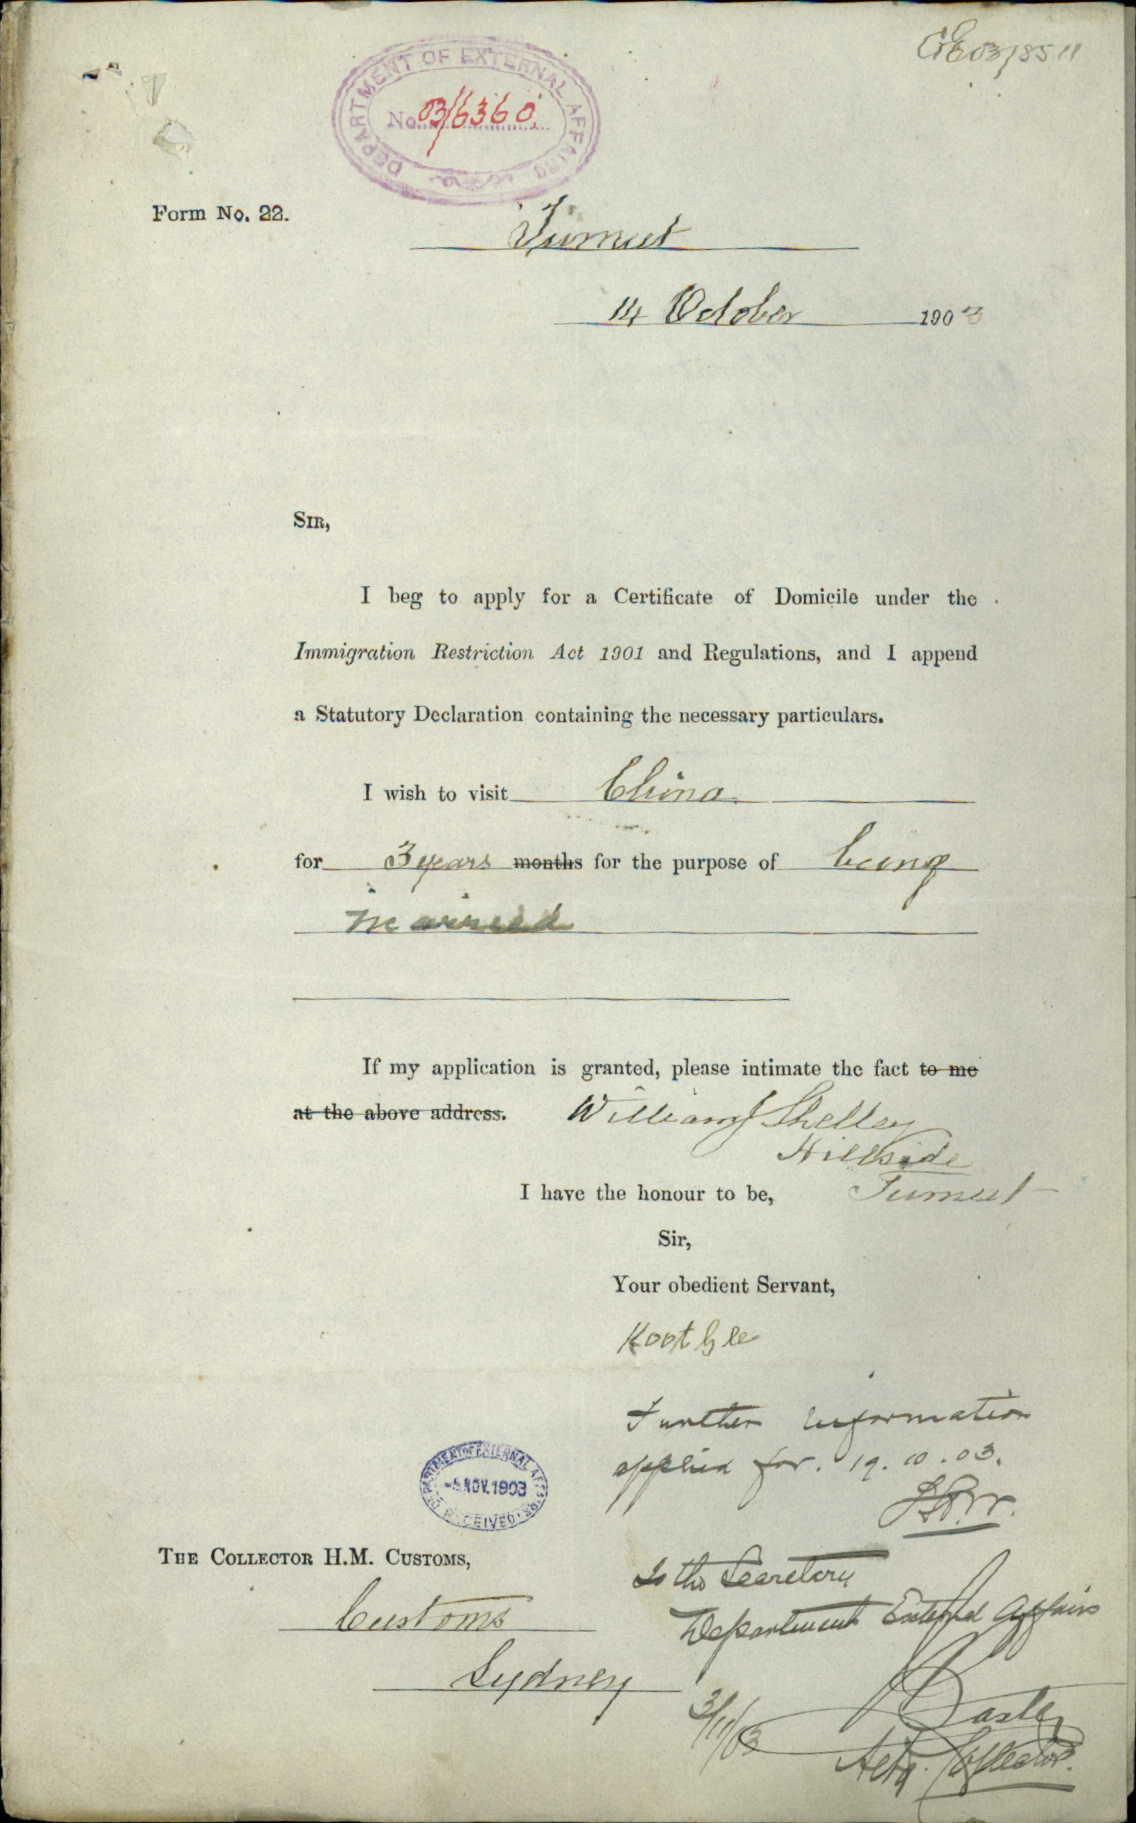 CE03/8511
DEPARTMENT OF EXTERNAL AFFAIRS
No. 03/6360.
Form No. 22.
Tumut
14 October 1903
SIR,
I beg to apply for a Certificate of Domicile under the
Immigration Restriction Act 1901 and Regulations, and I append
a Statutory Declaration containing the necessary particulars.
I wish to visit China
for 3 years months for the purpose of being
married
If my application is granted, please intimate the fact to me
at the above address. William J Shelley
Hillside
I have the honour to be, Tumut
Sir,
Your obedient Servant,
Koot Gee
Further information
applied for. 19.10.03.
DEPARTMENT OF EXTERNAL AFFAIRS
NOV. 1903
RECEIVED
THE COLLECTOR H.M. CUSTOMS,
To the Secretary
Customs
Department External Affairs
Sydney
3/11/03
Baxter
Actg. Collector.